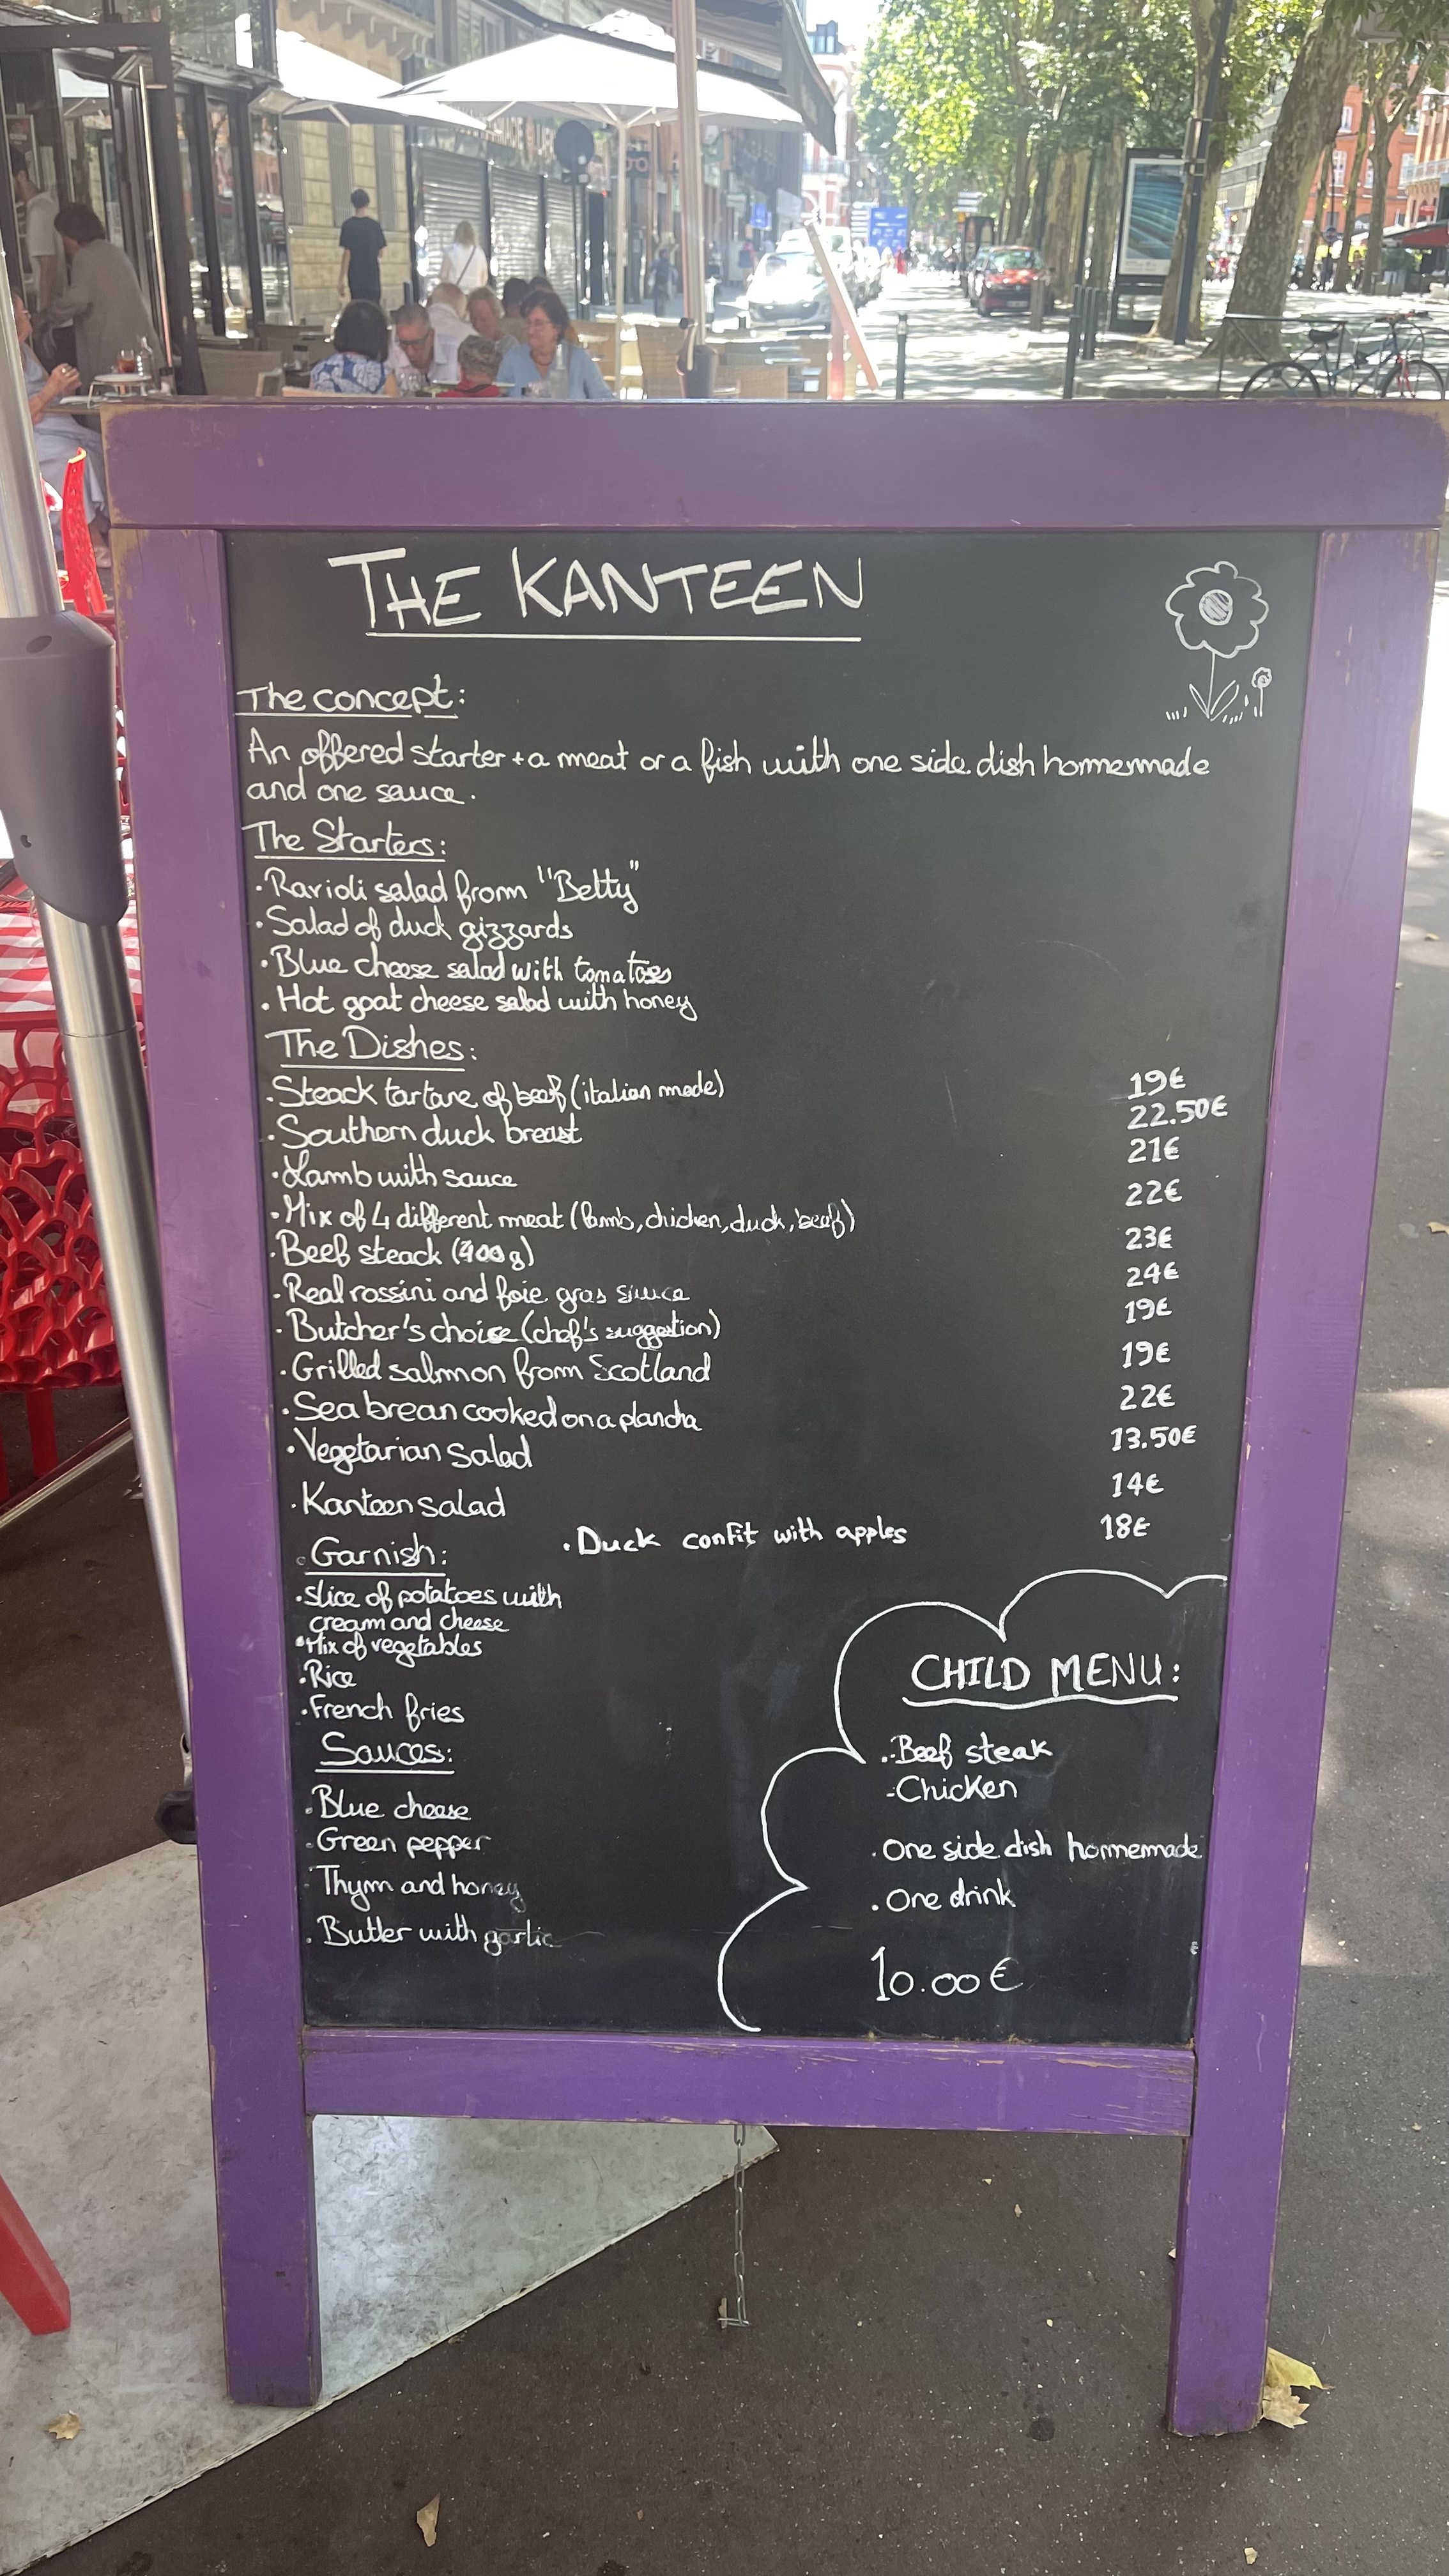 THE KANTEEN
The concept:
An offered starter + a meat or a fish with one side dish hommemade
and one sauce.
The Starters:
· Ravioli salad from "Betty"
· Salad of duck gizzards
· Blue cheese salad with tomatoes
· Hot goat cheese salad with honey
The Dishes:
· Steack tartare of beef (italian mode) 19€
· Southern duck breast 22.50€
· Lamb with sauce 21€
· Mix of 4 different meat (lamb, chicken, duck, beef) 22€
· Beef steack (400g) 23€
· Real rossini and foie gras sauce 24€
· Butcher's choise (chef's suggestion) 19€
· Grilled salmon from Scotland 19€
· Sea brean cooked on a plancha 22€
· Vegetarian salad 13.50€
· Kanteen salad 14€
· Duck confit with apples 18€
Garnish:
· slice of potatoes with
cream and cheese
· Mix of vegetables
· Rice
· French fries
Sauces:
· Blue cheese
· Green pepper
· Thym and honey
· Butter with garlic
CHILD MENU:
· Beef steak
- Chicken
· One side dish hommemade
· One drink
10.00€